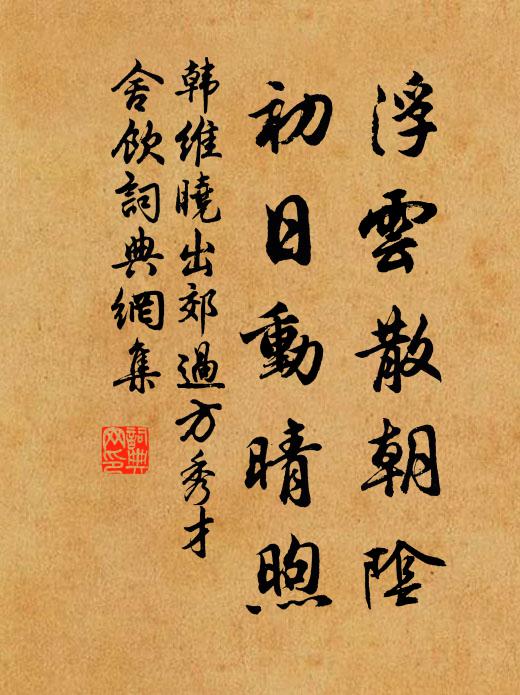 浮雲散朝陰
初日動晴煦
韩維曉出郊過方秀才
舍飲詞典網集
詞典
网印